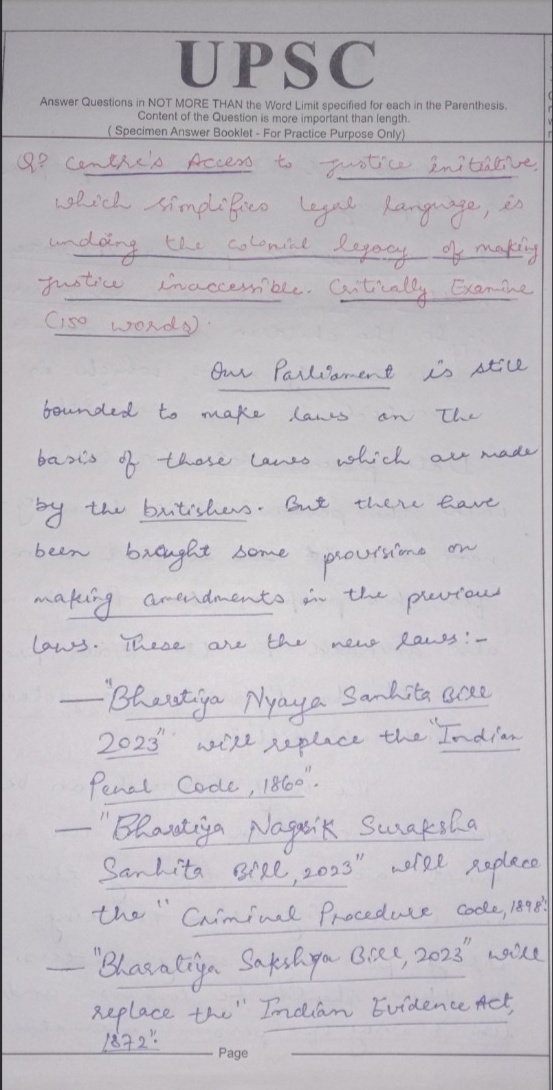 UPSC
Answer Questions in NOT MORE THAN the Word Limit specified for each in the Parenthesis.
Content of the Question is more important than length.
( Specimen Answer Booklet - For Practice Purpose Only)
Q? Centre's Access to justice initiative,
which simplifies legal language, is
undoing the colonial legacy of making
justice inaccessible. Critically Examine
(150 words).
Our Parliament is still
bounded to make laws on the
basis of those laws which are made
by the britishers. But there have
been brought some provisions on
making amendments in the previous
laws. These are the new laws:-
— "Bharatiya Nyaya Sanhita Bill
2023" will replace the "Indian
Penal Code, 1860".
— "Bhartiya Nagrik Suraksha
Sanhita Bill, 2023" will replace
the "Criminal Procedure Code, 1898".
— "Bharatiya Sakshya Bill, 2023" will
replace the "Indian Evidence Act,
1872".
Page